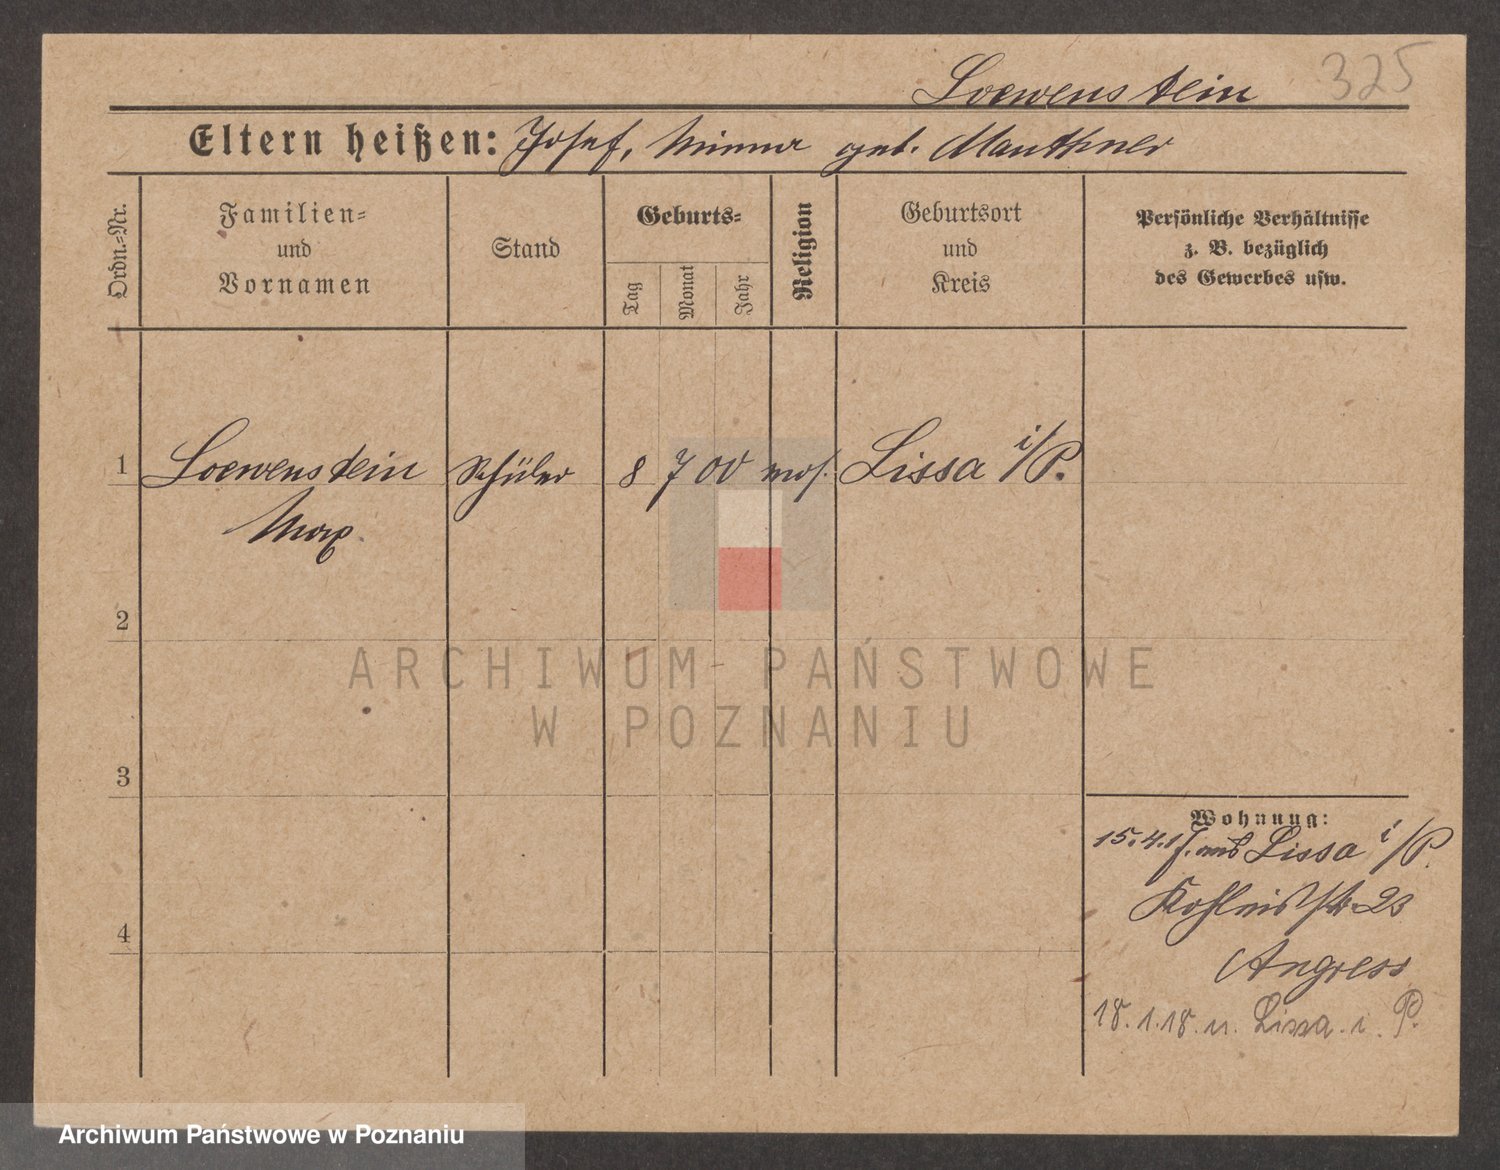 Loewenstein 325
Eltern heißen: Josef, Minna geb. Mauthner
Ordn.-Nr.
Familien-
und
Vornamen
Stand
Geburts-
Tag
Monat
Jahr
Religion
Geburtsort
und
Kreis
Persönliche Verhältnisse
z. B. bezüglich
des Gewerbes usw.
1 Loewenstein Schüler 8 7 00 mos. Lissa i/P.
Max
2
3
4
Wohnung:
15.4.17. aus Lissa i/P.
23
Angress
18.1.18. n. Lissa i. P.
ARCHIWUM PAŃSTWOWE
W POZNANIU
Archiwum Państwowe w Poznaniu